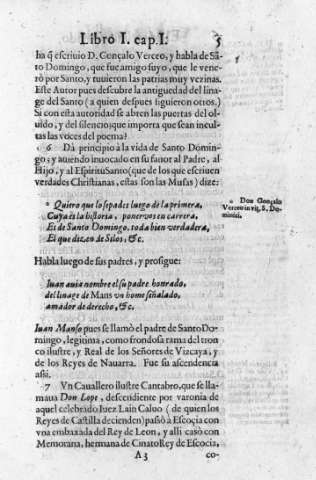 Libro I. cap. I. 5
ha q̃ escriuio D. Gonçalo Verceo, y habla de Sã-
to Domingo, que fue amigo suyo, que le vene-
rò por Santo, y tuuieron las patrias muy vezinas.
Este Autor pues descubre la antiguedad del lina-
ge del Santo (a quien despues siguieron otros.)
Si con esta autoridad se abren las puertas del ol-
uido, y del silencio; que importa que sean incul-
tas las vozes del poema?
6 Dà principio à la vida de Santo Domin-
go; y auiendo inuocado en su fauor al Padre, al
Hijo, y al Espiritu Santo (que de los que escriuen
verdades Christianas, estas son las Musas) dize:
a Quiero que lo sepades luego de la primera,
Cuya es la historia, poner vos en carrera,
Es de Santo Domingo, toda bien verdadera,
El que dizen de Silos, &c.
a Don Gonçalo
Verceo in vit. S. Do-
minici.
Habla luego de sus padres, y prosigue:
Iuan auia nombre el su padre honrado,
del linage de Mans un home señalado,
amador de derecho, &c.
Iuan Manso pues se llamò el padre de Santo Do-
mingo, legitima, como frondosa rama del tron
co ilustre, y Real de los Señores de Vizcaya, y
de los Reyes de Nauarra. Fue su ascendencia
assi.
7 Vn Cauallero ilustre Cantabro, que se lla-
maua Don Lope, descendiente por varonia de
aquel celebrado Iuez Lain Caluo (de quien los
Reyes de Castilla decienden) passò à Escocia con
vna embaxada del Rey de Leon, y alli casò con
Memorana, hermana de Cinato Rey de Escocia,
A 3 co-